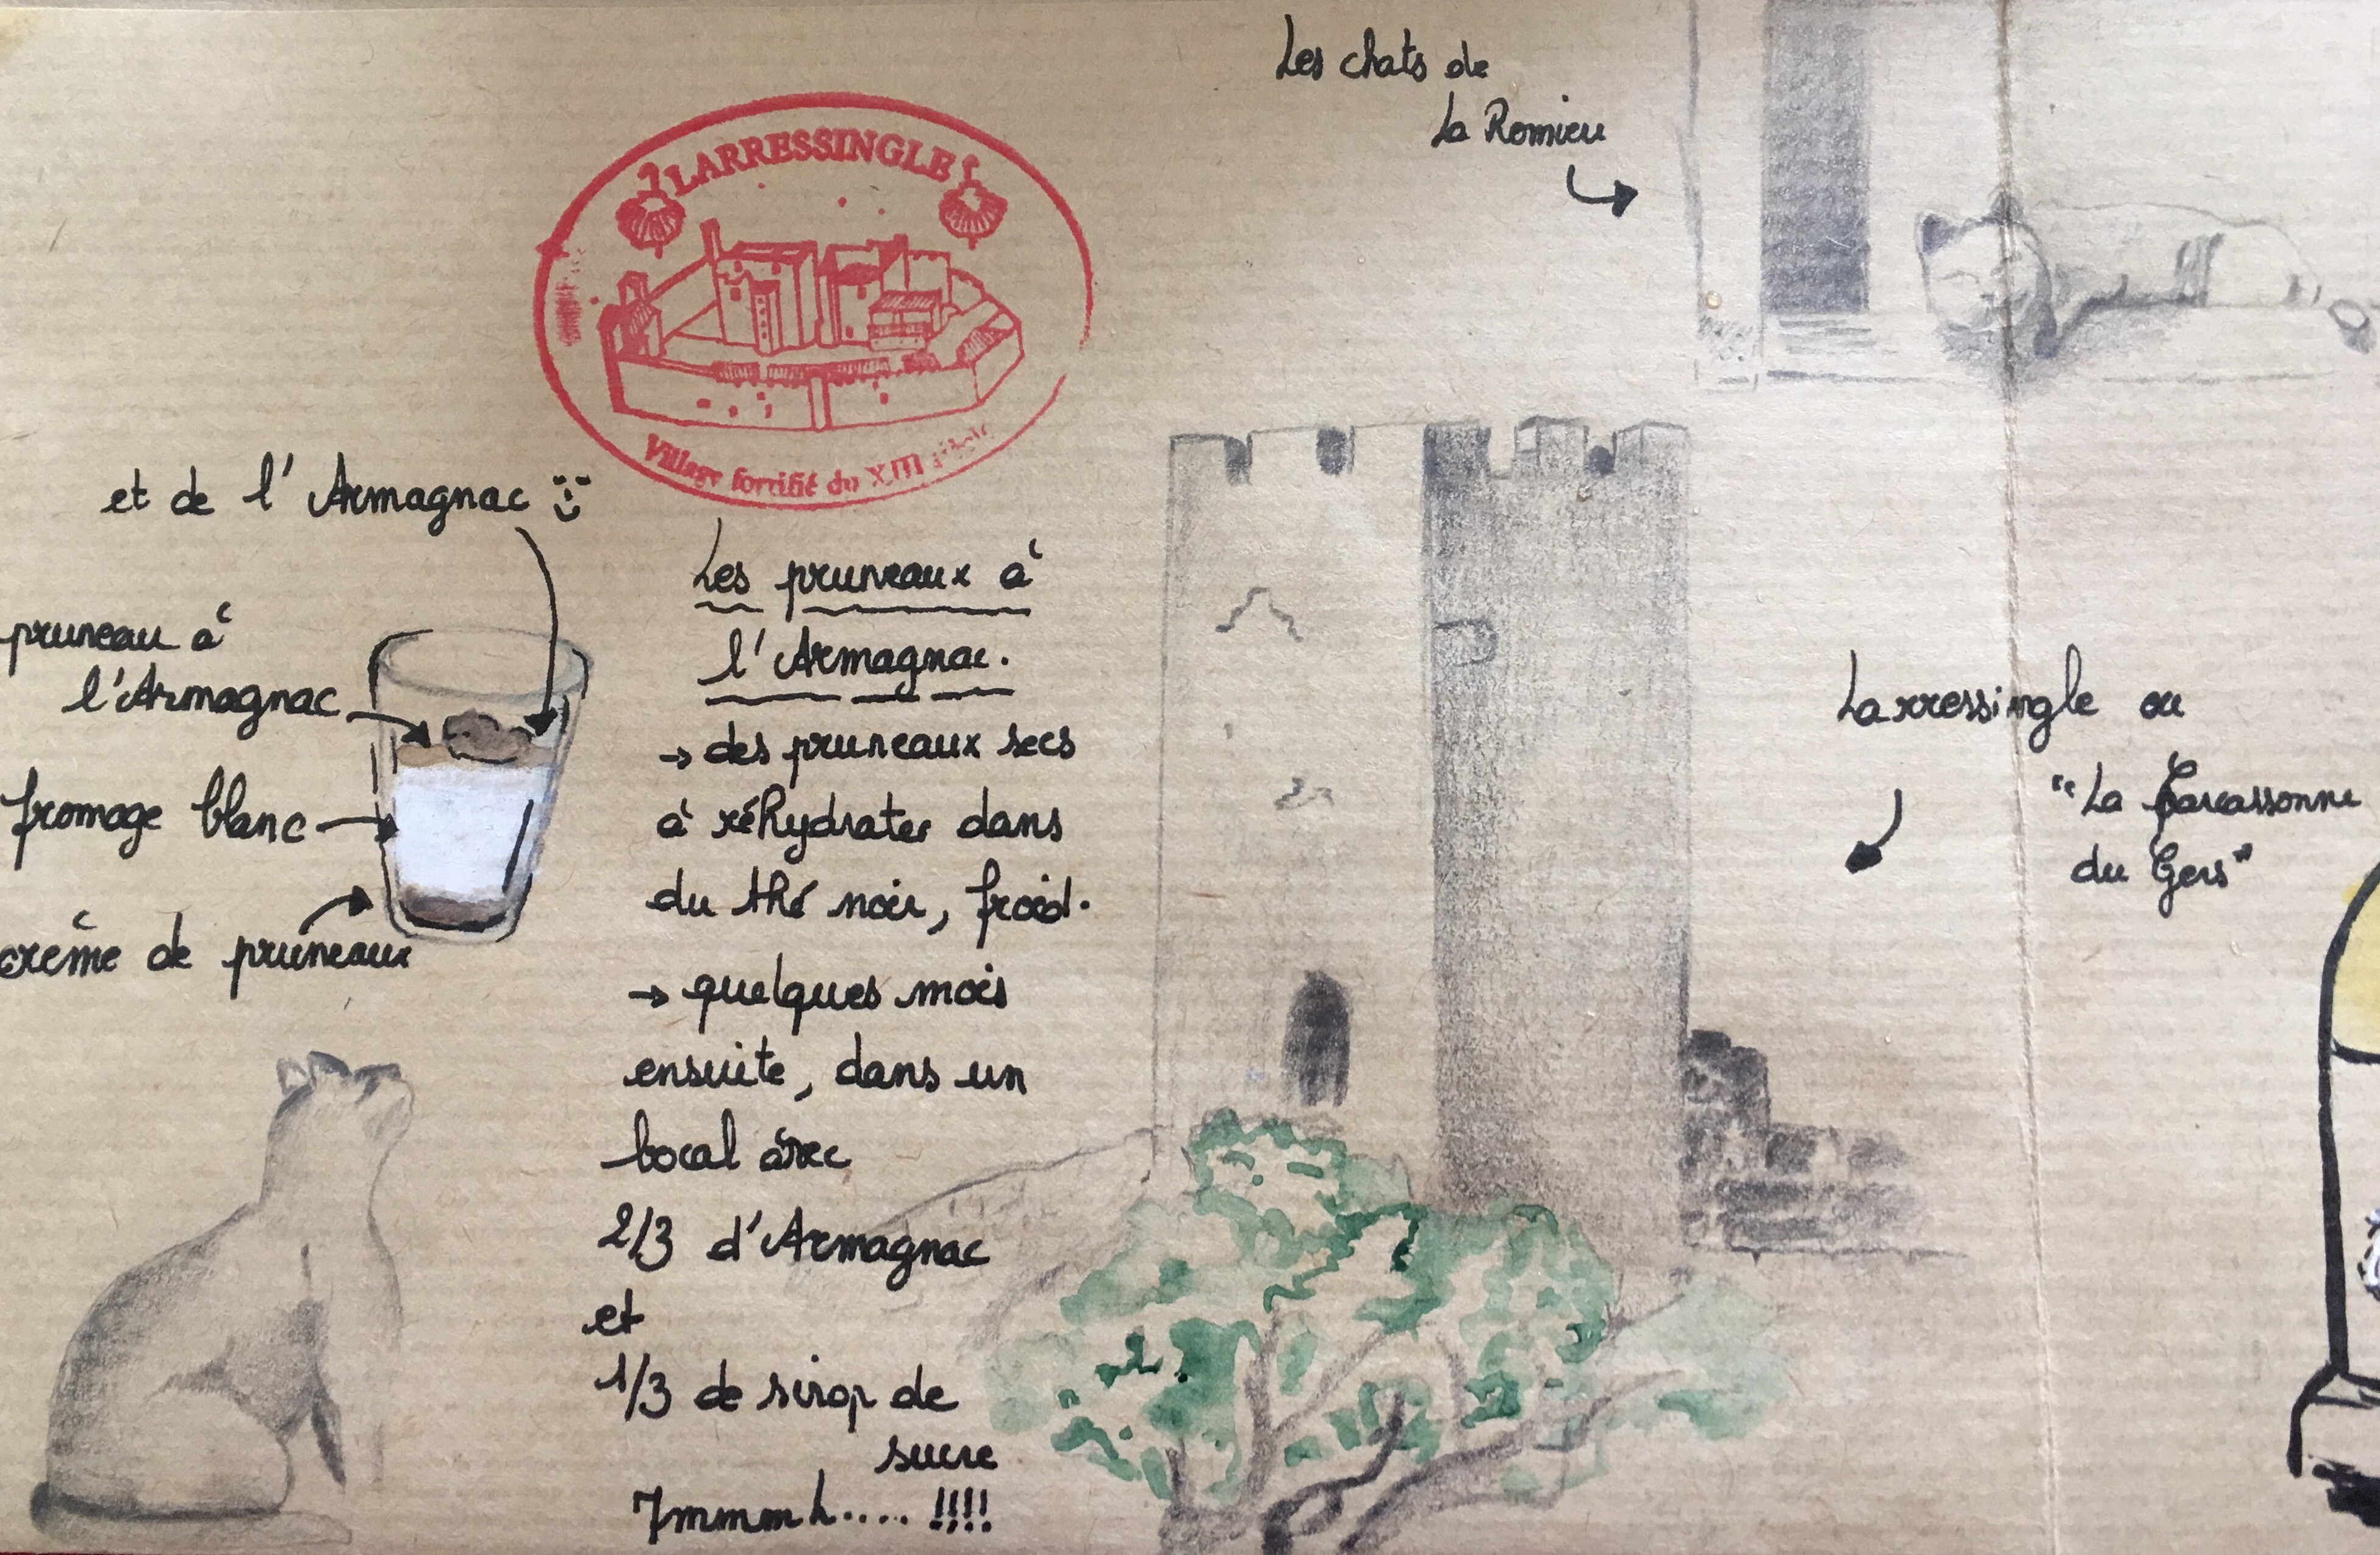 Les chats de
La Romieu
LARRESSINGLE
Village fortifié du XIII siècle
et de l'Armagnac
pruneau à
l'Armagnac
fromage blanc
crème de pruneaux
Les pruneaux à
l'Armagnac.
→ des pruneaux secs
à réhydrater dans
du thé noir, froid.
→ quelques mois
ensuite, dans un
bocal avec
2/3 d'Armagnac
et
1/3 de sirop de
sucre
Larressingle ou
"La Carcassonne
du Gers"